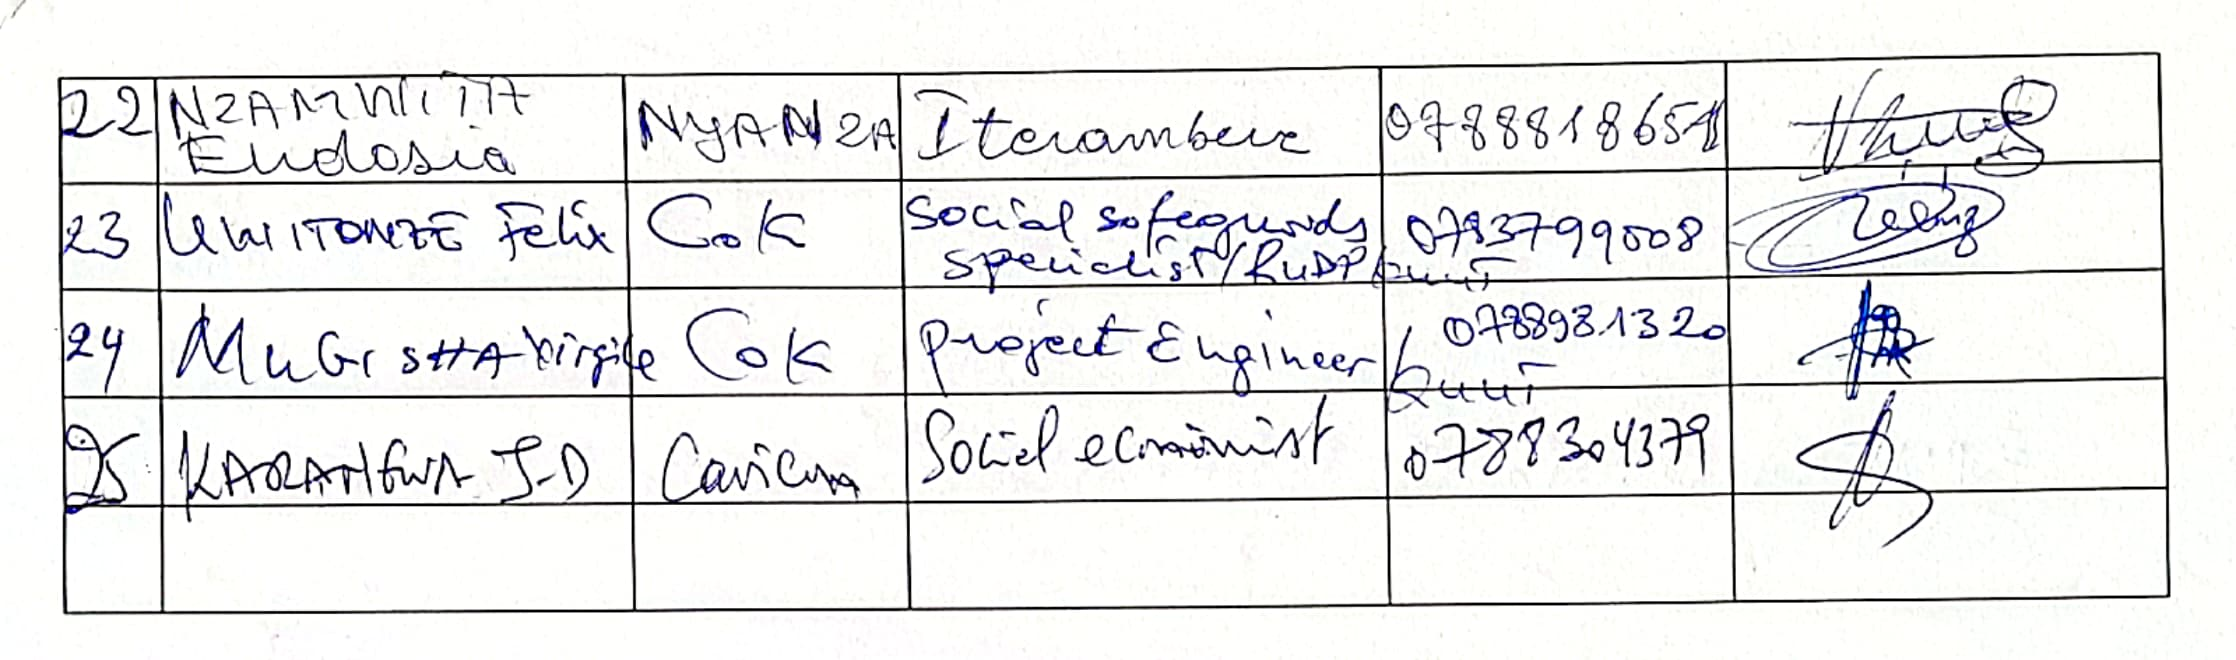 22 NZAMWITA Eudosia NYANZA Iterambere 0788818651
23 UWITONZE Felix CoK Social safeguards specialist/RUDP 0783799008
24 MuGisHA Virgile CoK Project Engineer/ 0788981320
25 KARANGWA J-D Social economist 0788304379